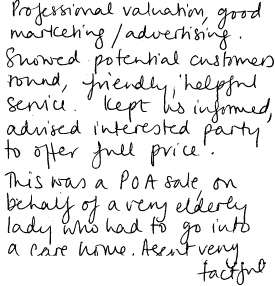 Professional valuation, good
marketing/advertising.
Showed potential customers
round, friendly, helpful
service. Kept us informed,
advised interested party
to offer full price.
This was a POA sale, on
behalf of a very elderly
lady who had to go into
a care home. Agent very
tactful